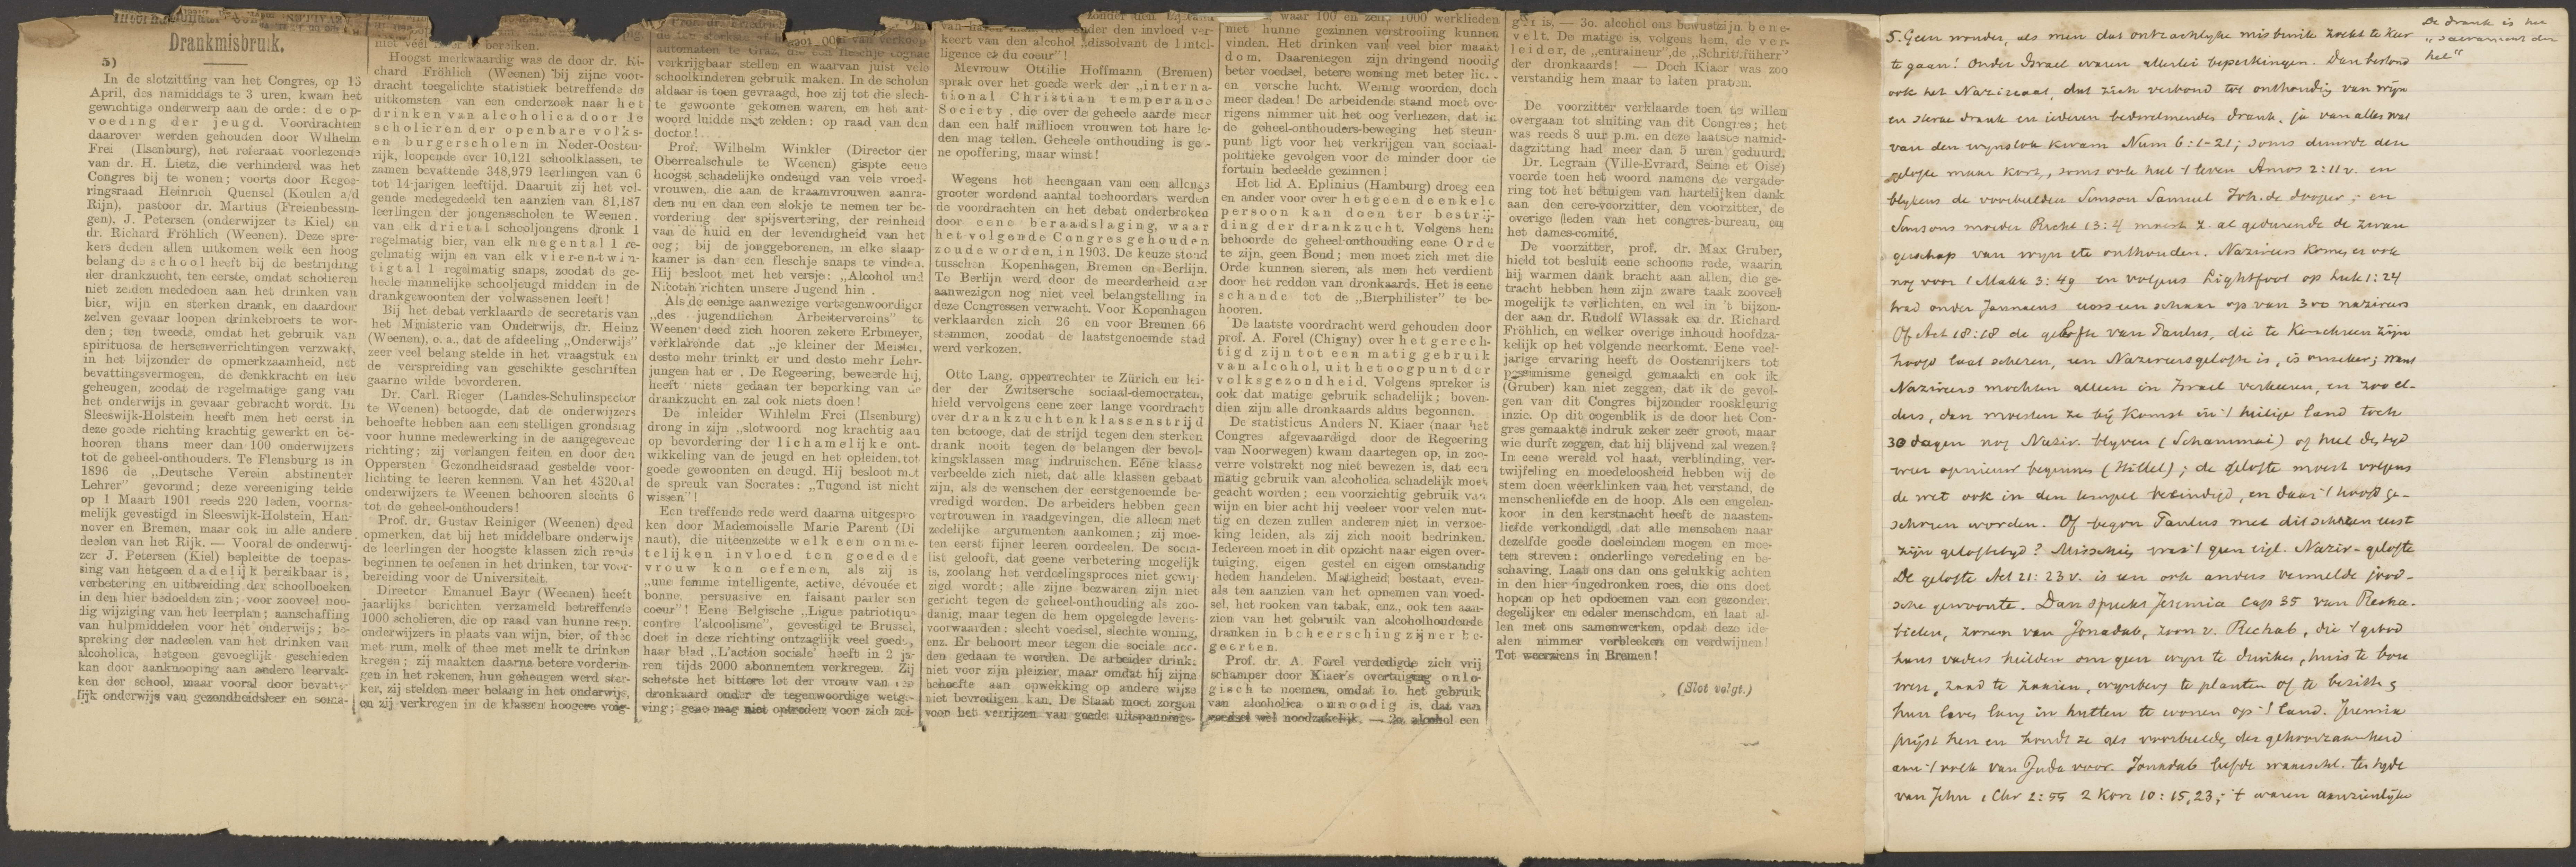 Drankmisbruik.
5)
In de slotzitting van het Congres, op 15
April, des namiddags te 3 uren, kwam het
gewichtige onderwerp aan de orde: de op-
voeding der jeugd. Voordrachten
daarover werden gehouden door Wilhelm
Frei (Ilsenburg), het referaat voorlezende
van dr. H. Lietz, die verhinderd was het
Congres bij te wonen; voorts door Regee-
ringsraad Heinrich Quensel (Keulen a/d
Rijn), pastoor dr. Martius (Freienbessin-
gen), J. Petersen (onderwijzer te Kiel) en
dr. Richard Fröhlich (Weenen). Deze spre-
kers deden allen uitkomen welk een hoog
belang de school heeft bij de bestrijding
der drankzucht, ten eerste, omdat scholieren
niet zelden mededoen aan het drinken van
bier, wijn en sterken drank, en daardoor
zelven gevaar loopen drinkebroers te wor-
den; ten tweede, omdat het gebruik van
spirituosa de hersenverrichtingen verzwakt,
in het bijzonder de opmerkzaamheid, het
bevattingsvermogen, de denkkracht en het
geheugen, zoodat de regelmatige gang van
het onderwijs in gevaar gebracht wordt. In
Sleeswijk-Holstein heeft men het eerst in
deze goede richting krachtig gewerkt en be-
hooren thans meer dan 100 onderwijzers
tot de geheel-onthouders. Te Flensburg is in
1896 de „Deutsche Verein abstinenter
Lehrer" gevormd; deze vereeniging telde
op 1 Maart 1901 reeds 220 leden, voorna-
melijk gevestigd in Sleeswijk-Holstein, Han-
nover en Bremen, maar ook in alle andere
deelen van het Rijk. — Vooral de onderwij-
zer J. Petersen (Kiel) bepleitte de toepas-
sing van hetgeen dadelijk bereikbaar is,
verbetering en uitbreiding der schoolboeken
in den hier bedoelden zin; voor zooveel noo-
dig wijziging van het leerplan; aanschaffing
van hulpmiddelen voor het onderwijs; be-
spreking der nadeelen van het drinken van
alcoholica, hetgeen gevoeglijk geschieden
kan door aanknooping aan andere leervak-
ken der school, maar vooral door bevatte-
lijk onderwijs van gezondheidsleer en socia-
niet véél
bereiken.
Hoogst merkwaardig was de door dr. Ri-
chard Fröhlich (Weenen) bij zijne voor-
dracht toegelichte statistiek betreffende de
uitkomsten van een onderzoek naar het
drinken van alcoholica door de
scholieren der openbare volks-
en burgerscholen in Neder-Oosten-
rijk, loopende over 10,121 schoolklassen, te
zamen bevattende 348,979 leerlingen van 6
tot 14-jarigen leeftijd. Daaruit zij het vol-
gende medegedeeld ten aanzien van 81,187
leerlingen der jongensscholen te Weenen.
van elk drietal schooljongens dronk 1
regelmatig bier, van elk negental 1 re-
gelmatig wijn en van elk vier-en-twin-
tigtal 1 regelmatig snaps, zoodat de ge-
heele mannelijke schooljeugd midden in de
drankgewoonten der volwassenen leeft!
Bij het debat verklaarde de secretaris van
het Ministerie van Onderwijs, dr. Heinz
(Weenen), o. a., dat de afdeeling „Onderwijs"
zeer veel belang stelde in het vraagstuk en
de verspreiding van geschikte geschriften
gaarne wilde bevorderen.
Dr. Carl. Rieger (Landes-Schulinspector
te Weenen) betoogde, dat de onderwijzers
behoefte hebben aan een stelligen grondslag
voor hunne medewerking in de aangegevene
richting; zij verlangen feiten en door den
Oppersten Gezondheidsraad gestelde voor-
lichting te leeren kennen. Van het 4320tal
onderwijzers te Weenen behooren slechts 6
tot de geheel-onthouders!
Prof. dr. Gustav Reiniger (Weenen) deed
opmerken, dat bij het middelbare onderwijs
de leerlingen der hoogste klassen zich reeds
beginnen te oefenen in het drinken, ter voor-
bereiding voor de Universiteit.
Director Emanuel Bayr (Weenen) heeft
jaarlijks berichten verzameld betreffende
1000 scholieren, die op raad van hunne resp.
onderwijzers in plaats van wijn, bier, of thee
met rum, melk of thee met melk te drinken
kregen; zij maakten daarna betere vorderin-
gen in het rekenen, hun geheugen werd ster-
ker, zij stelden meer belang in het onderwijs,
en zij verkregen in de klassen hoogere volg-
automaten te Graz, die een fleschje cognac
verkrijgbaar stellen en waarvan juist vele
schoolkinderen gebruik maken. In de scholen
aldaar is toen gevraagd, hoe zij tot die slech-
te gewoonte gekomen waren, en het ant-
woord luidde niet zelden: op raad van den
doctor!
Prof. Wilhelm Winkler (Director der
Oberrealschule te Weenen) gispte eene
hoogst schadelijke ondeugd van vele vroed-
vrouwen, die aan de kraamvrouwen aanra-
den nu en dan een slokje te nemen ter be-
vordering der spijsvertering, der reinheid
van de huid en der levendigheid van het
oog; bij de jonggeborenen, in elke slaap-
kamer is dan een fleschje snaps te vinden.
Hij besloot met het versje: „Alcohol und
Nicotin richten unsere Jugend hin".
Als de eenige aanwezige vertegenwoordiger
„des jugendlichen Arbeitervereins" te
Weenen deed zich hooren zekere Erbmeyer,
verklarende dat „je kleiner der Meister,
desto mehr trinkt er und desto mehr Lehr-
jungen hat er". De Regeering, beweerde hij,
heeft niets gedaan ter beperking van de
drankzucht en zal ook niets doen!
De inleider Wihlelm Frei (Ilsenburg)
drong in zijn „slotwoord nog krachtig aan
op bevordering der lichamelijke ont-
wikkeling van de jeugd en het opleiden tot
goede gewoonten en deugd. Hij besloot met
de spreuk van Socrates: „Tugend ist nicht
wissen"!
Een treffende rede werd daarna uitgespro-
ken door Mademoiselle Marie Parent (Di
naut), die uiteenzette welk een onme-
telijken invloed ten goede de
vrouw kon oefenen, als zij is
„une femme intelligente, active, dévouée et
bonne, persuasive en faisant parler son
coeur"! Eene Belgische „Ligue patriotique
contre l'alcoolisme", gevestigd te Brussel,
doet in deze richting ontzaglijk veel goeds,
haar blad „L'action sociale" heeft in 2 ja-
ren tijds 2000 abonnenten verkregen. Zij
schetste het bittere lot der vrouw van een
dronkaard onder de tegenwoordige wetge-
ving; gene mag niet optreden voor zich zel-
keert van den alcohol „dissolvant de l'intel-
ligence et du coeur"!
Mevrouw Ottilie Hoffmann (Bremen)
sprak over het goede werk der „interna-
tional Christian temperance
Society", die over de geheele aarde meer
dan een half millioen vrouwen tot hare le-
den mag tellen. Geheele onthouding is gee-
ne opoffering, maar winst!
Wegens het heengaan van een allengs
grooter wordend aantal toehoorders werden
de voordrachten en het debat onderbroken
door eene beraadslaging, waar
het volgende Congres gehouden
zoude worden, in 1903. De keuze stond
tusschen Kopenhagen, Bremen en Berlijn.
Te Berlijn werd door de meerderheid der
aanwezigen nog niet veel belangstelling in
deze Congressen verwacht. Voor Kopenhagen
verklaarden zich 26 en voor Bremen 66
stemmen, zoodat de laatstgenoemde stad
werd verkozen.
Otto Lang, opperrechter te Zürich en lei-
der der Zwitsersche sociaal-democraten,
hield vervolgens eene zeer lange voordracht
over drankzucht en klassenstrijd
ten betooge, dat de strijd tegen den sterken
drank nooit tegen de belangen der bevol-
kingsklassen mag indruischen. Eéne klasse
verbeelde zich niet, dat alle klassen gebaat
zijn, als de wenschen der eerstgenoemde be-
vredigd worden. De arbeiders hebben geen
vertrouwen in raadgevingen, die alleen met
zedelijke argumenten aankomen; zij moe-
ten eerst fijner leeren oordeelen. De socia-
list gelooft, dat geene verbetering mogelijk
is, zoolang het verdeelingsproces niet gewij-
zigd wordt; alle zijne bezwaren zijn niet
gericht tegen de geheel-onthouding als zoo-
danig, maar tegen de hem opgelegde levens-
voorwaarden: slecht voedsel, slechte woning,
enz. Er behoort meer tegen die sociale noo-
den gedaan te worden. De arbeider drinkt
niet voor zijn pleizier, maar omdat hij zijne
behoefte aan opwekking op andere wijze
niet bevredigen kan. De Staat moet zorgen
voor het verrijzen van goede uitspannings-
waar 100 en zelfs 1000 werklieden
met hunne gezinnen verstrooiing kunnen
vinden. Het drinken van veel bier maakt
dom. Daarentegen zijn dringend noodig
beter voedsel, betere woning met beter lic..
en versche lucht. Weinig woorden, doch
meer daden! De arbeidende stand moet ove-
rigens nimmer uit het oog verliezen, dat in
de geheel-onthouders-beweging het steun-
punt ligt voor het verkrijgen van sociaal-
politieke gevolgen voor de minder door de
fortuin bedeelde gezinnen!
Het lid A. Eplinius (Hamburg) droeg een
en ander voor over hetgeen de enkele
persoon kan doen ter bestrij-
ding der drankzucht. Volgens hem
behoorde de geheel-onthouding eene Orde
te zijn, geen Bond; men moet zich met die
Orde kunnen sieren, als men het verdient
door het redden van dronkaards. Het is eene
schande tot de „Bierphilister" te be-
hooren.
De laatste voordracht werd gehouden door
prof. A. Forel (Chigny) over het gerech-
tigd zijn tot een matig gebruik
van alcohol, uit het oogpunt der
volksgezondheid. Volgens spreker is
ook dat matige gebruik schadelijk; boven-
dien zijn alle dronkaards aldus begonnen.
De statisticus Anders N. Kiaer (naar het
Congres afgevaardigd door de Regeering
van Noorwegen) kwam daartegen op, in zoo-
verre volstrekt nog niet bewezen is, dat een
matig gebruik van alcoholica schadelijk moet
geacht worden; een voorzichtig gebruik van
wijn en bier acht hij veeleer voor velen nut-
tig en dezen zullen anderen niet in verzoe-
king leiden, als zij zich nooit bedrinken.
Iedereen moet in dit opzicht naar eigen over-
tuiging, eigen gestel en eigen omstandig
heden handelen. Matigheid bestaat, even-
als ten aanzien van het opnemen van voed-
sel, het rooken van tabak, enz., ook ten aan-
zien van het gebruik van alcoholhoudende
dranken in beheersching zijner be-
geerten.
Prof. dr. A. Forel verdedigde zich vrij
schamper door Kiaer's overtuiging onlo-
gisch te noemen, omdat 1o. het gebruik
van alcoholica onnoodig is, dat van
voedsel wèl noodzakelijk. — 2o. alcohol een
gif is. — 3o. alcohol ons bewustzijn bene-
velt. De matige is, volgens hem, de ver-
leider, de „entraineur", de „Schrittführer"
der dronkaards! — Doch Kiaer was zoo
verstandig hem maar te laten praten.
De voorzitter verklaarde toen te willen
overgaan tot sluiting van dit Congres; het
was reeds 8 uur p.m. en deze laatste namid-
dagzitting had meer dan 5 uren geduurd.
Dr. Legrain (Ville-Evrard, Seine et Oise)
voerde toen het woord namens de vergade-
ring tot het betuigen van hartelijken dank
aan den eere-voorzitter, den voorzitter, de
overige leden van het congres-bureau, en
het dames-comité.
De voorzitter, prof. dr. Max Gruber,
hield tot besluit eene schoone rede, waarin
hij warmen dank bracht aan allen, die ge-
tracht hebben hem zijn zware taak zooveel
mogelijk te verlichten, en wel in 't bijzon-
der aan dr. Rudolf Wlassak en dr. Richard
Fröhlich, en welker overige inhoud hoofdza-
kelijk op het volgende neerkomt. Eene veel-
jarige ervaring heeft de Oostenrijkers tot
pessimisme geneigd gemaakt en ook ik
(Gruber) kan niet zeggen, dat ik de gevol-
gen van dit Congres bijzonder rooskleurig
inzie. Op dit oogenblik is de door het Con-
gres gemaakte indruk zeker zeer groot, maar
wie durft zeggen, dat hij blijvend zal wezen?
In eene wereld vol haat, verblinding, ver-
twijfeling en moedeloosheid hebben wij de
stem doen weerklinken van het verstand, de
menschenliefde en de hoop. Als een engelen-
koor in den kerstnacht heeft de naasten-
liefde verkondigd, dat alle menschen naar
dezelfde goede doeleinden mogen en moe-
ten streven: onderlinge veredeling en be-
schaving. Laat ons dan ons gelukkig achten
in den hier ingedronken roes, die ons doet
hopen op het opdoemen van een gezonder,
degelijker en edeler menschdom, en laat al-
len met ons samenwerken, opdat deze ide-
alen nimmer verbleeken en verdwijnen!
Tot weerziens in Bremen!
(Slot volgt.)
5. Geen wonder, als men dat ontzachlyke misbruik zoekt te keer
te gaan! Onder Israel waren allerlei beperkingen. Dan bestond
ook het Nazireaat, dat zich verbond tot onthouding van wijn
en sterke drank en iederen bedwelmenden drank, ja van alles wat
van den wynstok kwam Num 6:1-21; soms duurde den
gelofte maar kort, soms ook heel 't leven Amos 2:11 v. en
blykens de voorbeelden Simson Samuel Joh. de dooper; en
Simsons moeder Richt 13:4 moest z. al gedurende de zwan
gerschap van wyn etc onthouden. Nazireers komen er ook
nog voor 1 Makk 3:49 en volgens Lightfoot op Luk 1:24
trad onder Jannaeus eens een schaar op van 300 nazireers
Of Act 18:18 de gelofte van Paulus, die te Kenchreen zijn
hoofd laat scheren, een Nazireersgelofte is, is onzeker; want
Nazireers mochten alleen in Israel verkeeren, en zoo el-
ders, dan moesten ze bij komst in 't heilige land toch
30 dagen nog Nazir. blyven (Schammai) of heel den tyd
weer opnieuw beginnen (Hillel); de gelofte moest volgens
de wet ook in den tempel beëindigd, en daar 't hoofd ge-
schoren worden. Of begon Paulus met dit scheren eerst
zijn gelofte tyd? Misschien was 't geen eigl. Nazir-gelofte
De gelofte Act 21:23 v. is een ook anders vermelde jood-
sche gewoonte. Dan spreekt Jeremia Cap 35 van Recha-
bieten, zonen van Jonadab, zoon v. Rechab, die 't gebod
huns vaders hielden om geen wyn te drinken, huis te bou
wen, zaad te zaaien, wynberg te planten of te bezitten
hun leven lang in hutten te wonen op 't land. Jeremia
prijst hen en houdt ze als voorbeelden der gehoorzaamheid
aan 't volk van Juda voor. Jonadab leefde waarschl. ten tyde
van Jehu 1 Chr 2:55 2 Kon 10:15,23; 't waren aanzienlijke
De drank is het
„sacrament der
hel"